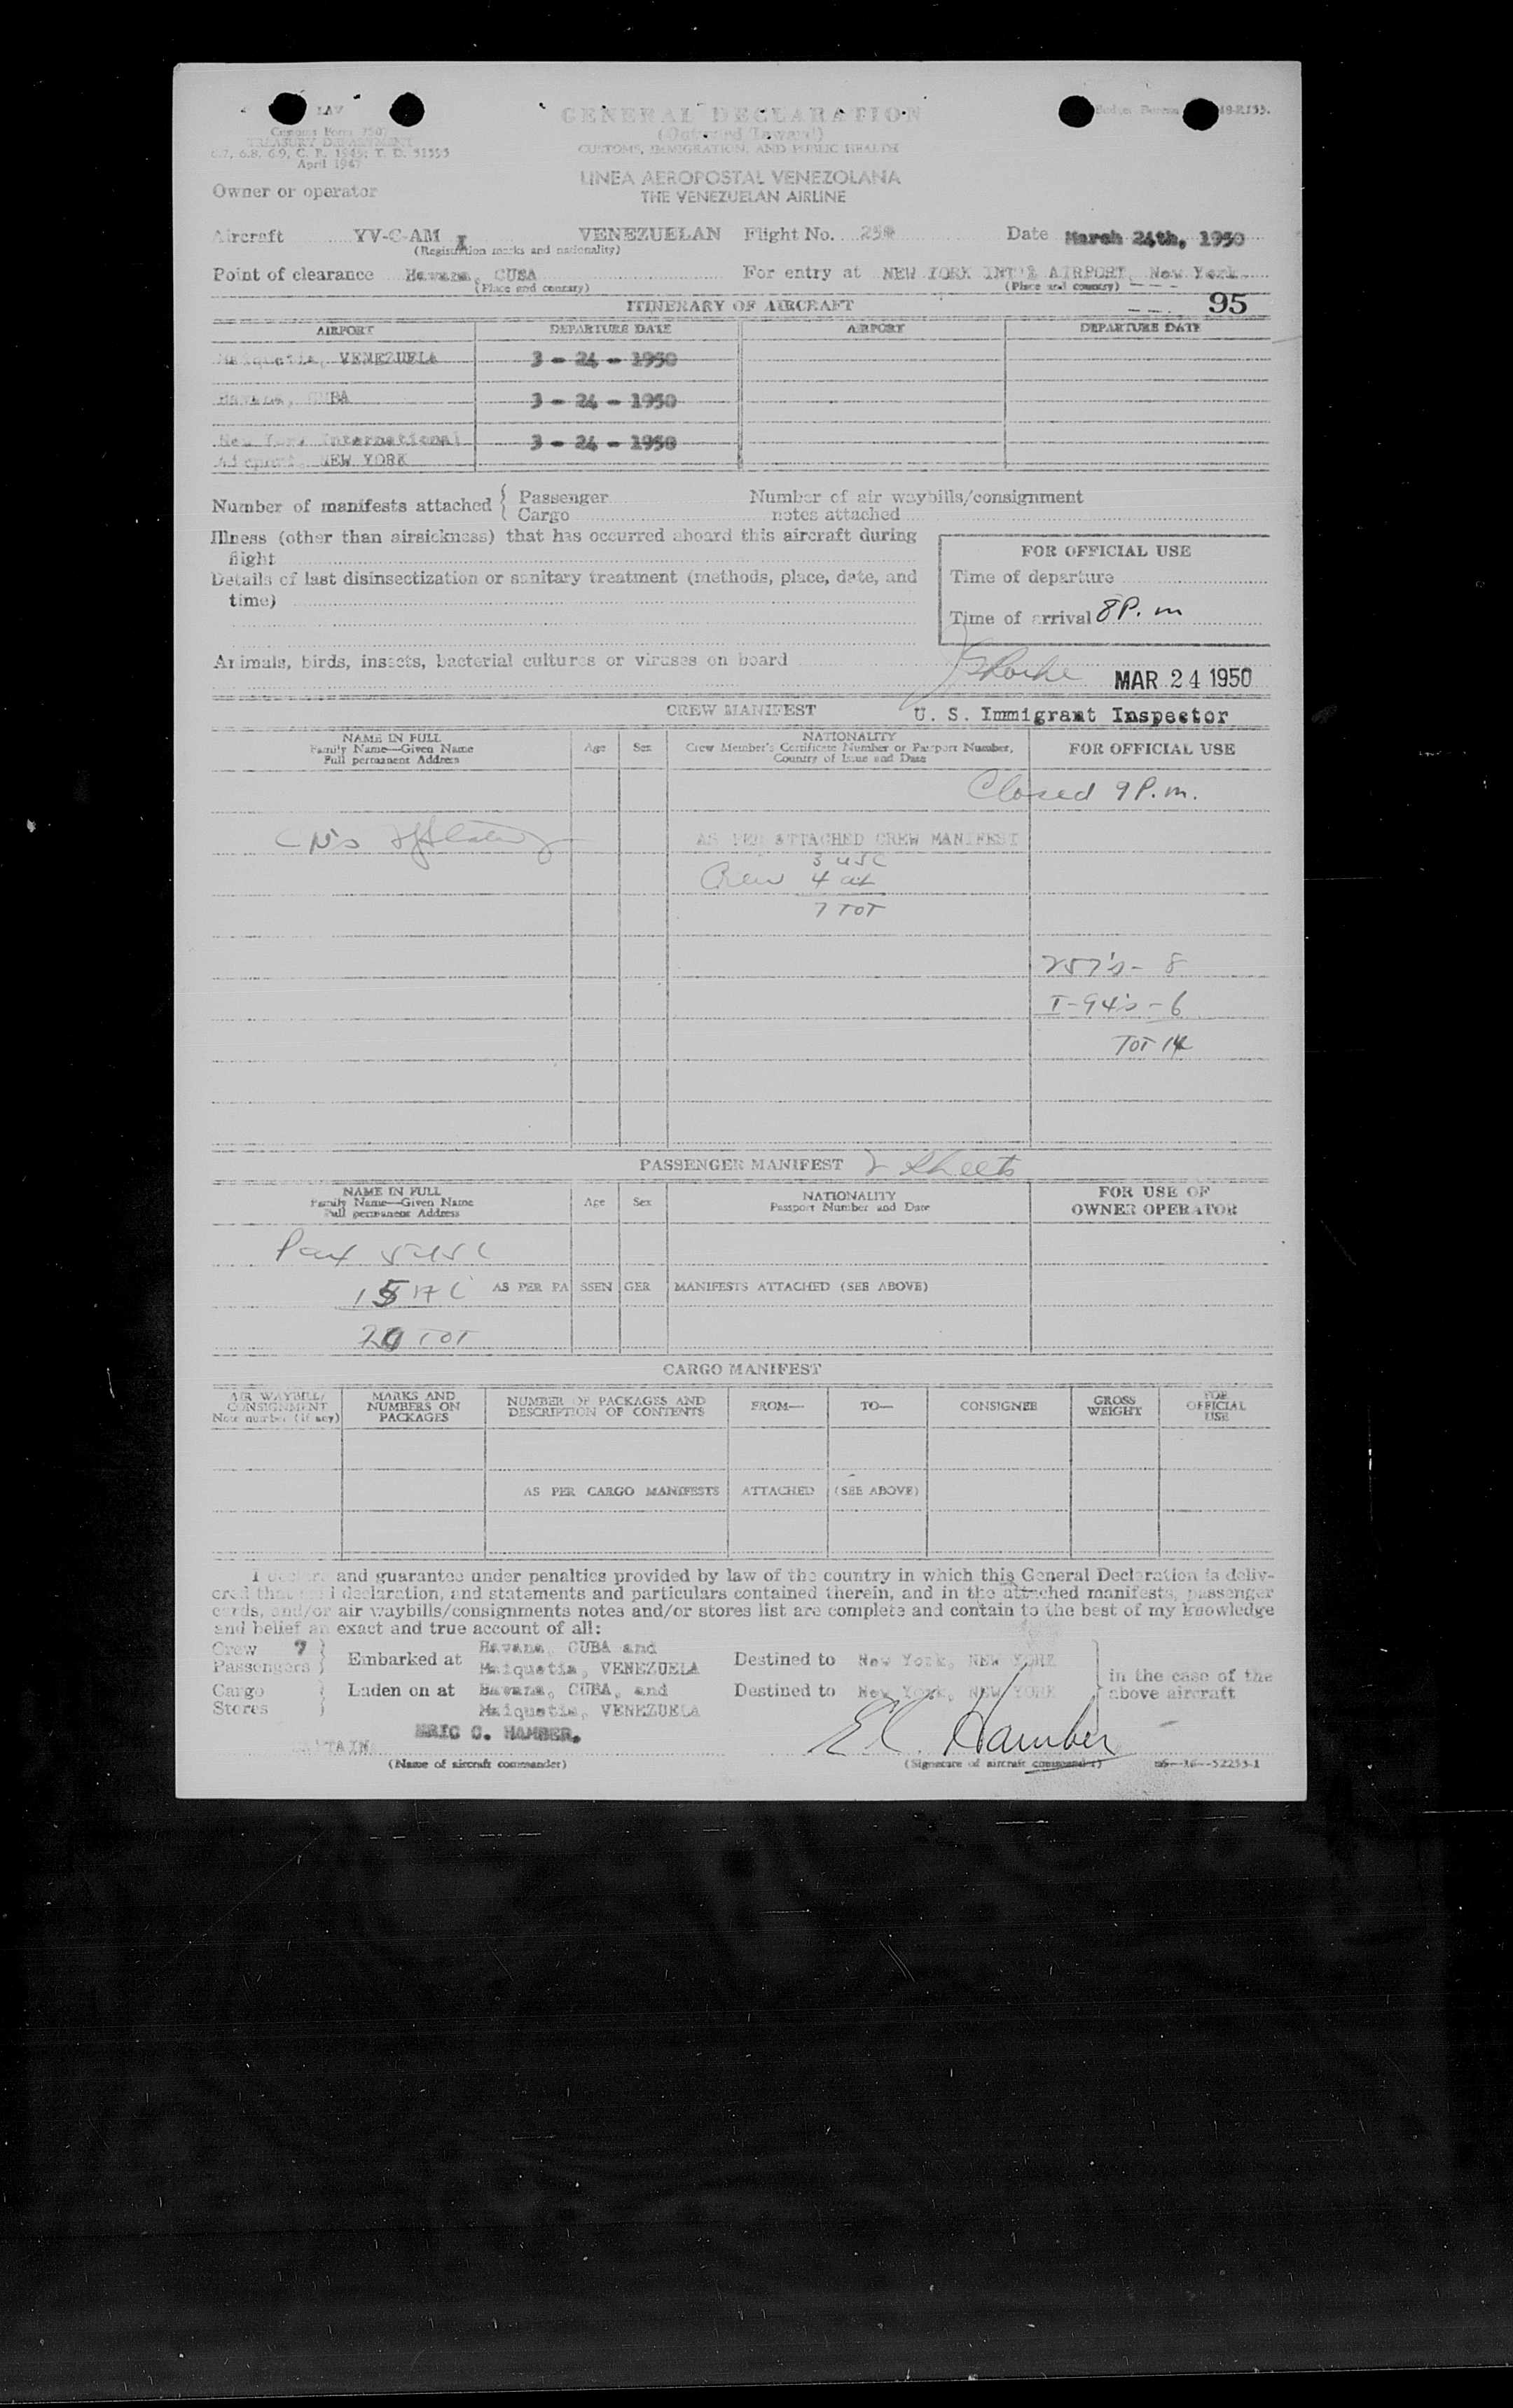 LAV
GENERAL DECLARATION
Customs Form 7507
(Outward/Inward)
TREASURY DEPARTMENT
CUSTOMS, IMMIGRATION, AND PUBLIC HEALTH
6.7, 6.8, 6.9, C. R. 1945; T. D. 51595
April 1947
LINEA AEROPOSTAL VENEZOLANA
Owner or operator
THE VENEZUELAN AIRLINE
Aircraft YV-C-AM I VENEZUELAN Flight No. Date March 24th, 1950
(Registration marks and nationality)
Point of clearance Havana, CUBA For entry at NEW YORK INT'L AIRPORT, New York
(Place and country) (Place and country)
ITINERARY OF AIRCRAFT 95
AIRPORT DEPARTURE DATE AIRPORT DEPARTURE DATE
Maiquetia, VENEZUELA 3 - 24 - 1950
Havana, CUBA 3 - 24 - 1950
New York International 3 - 24 - 1950
Airport, NEW YORK
Number of manifests attached { Passenger Number of air waybills/consignment
Cargo notes attached
Illness (other than airsickness) that has occurred aboard this aircraft during
flight
FOR OFFICIAL USE
Details of last disinsectization or sanitary treatment (methods, place, date, and
time)
Time of departure
Time of arrival 8 P. m
Animals, birds, insects, bacterial cultures or viruses on board
MAR 24 1950
CREW MANIFEST U. S. Immigrant Inspector
NAME IN FULL Age Sex NATIONALITY FOR OFFICIAL USE
Family Name—Given Name Crew Member's Certificate Number or Passport Number,
Full permanent Address Country of Issue and Date
Closed 9 P. m.
AS PER ATTACHED CREW MANIFEST
3 USC
Crew 4 al
7 TOT
257's - 8
I-94's - 6
TOT 14
PASSENGER MANIFEST 2 Sheets
NAME IN FULL Age Sex NATIONALITY FOR USE OF
Family Name—Given Name Passport Number and Date OWNER OPERATOR
Full permanent Address
Pax 5 USC
15 AS PER PASSENGER MANIFESTS ATTACHED (SEE ABOVE)
20 TOT
CARGO MANIFEST
AIR WAYBILL/ MARKS AND NUMBER OF PACKAGES AND FROM— TO— CONSIGNEE GROSS FOR
CONSIGNMENT NUMBERS ON DESCRIPTION OF CONTENTS WEIGHT OFFICIAL
Note number (if any) PACKAGES USE
AS PER CARGO MANIFESTS ATTACHED (SEE ABOVE)
I declare and guarantee under penalties provided by law of the country in which this General Declaration is deliv-
ered that declaration, and statements and particulars contained therein, and in the attached manifests, passenger
cards, and/or air waybills/consignments notes and/or stores list are complete and contain to the best of my knowledge
and belief an exact and true account of all:
Crew 7 } Embarked at Havana, CUBA and Destined to New York, NEW YORK
Passengers } Maiquetia, VENEZUELA in the case of the
Cargo } Laden on at Havana, CUBA, and Destined to New York, NEW YORK above aircraft
Stores } Maiquetia, VENEZUELA
CAPTAIN ERIC C. HAMBER. E C. Hamber
(Name of aircraft commander) (Signature of aircraft commander) 16—52253-1